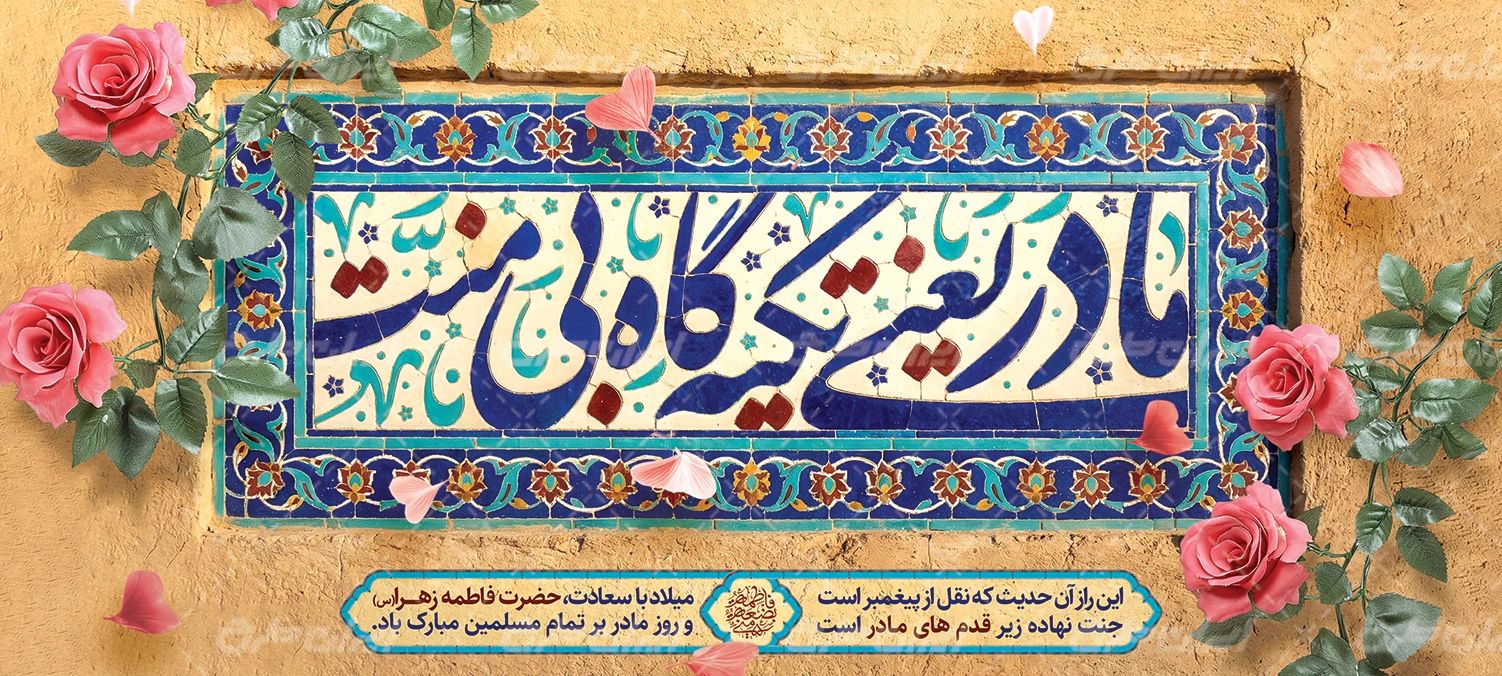 مادر یعنی تکیه گاه بی منت
این راز آن حدیث که نقل از پیغمبر است
جنت نهاده زیر قدم های مادر است
فاطمة بضعة منی
میلاد با سعادت، حضرت فاطمه زهرا(س)
و روز مادر بر تمام مسلمین مبارک باد.